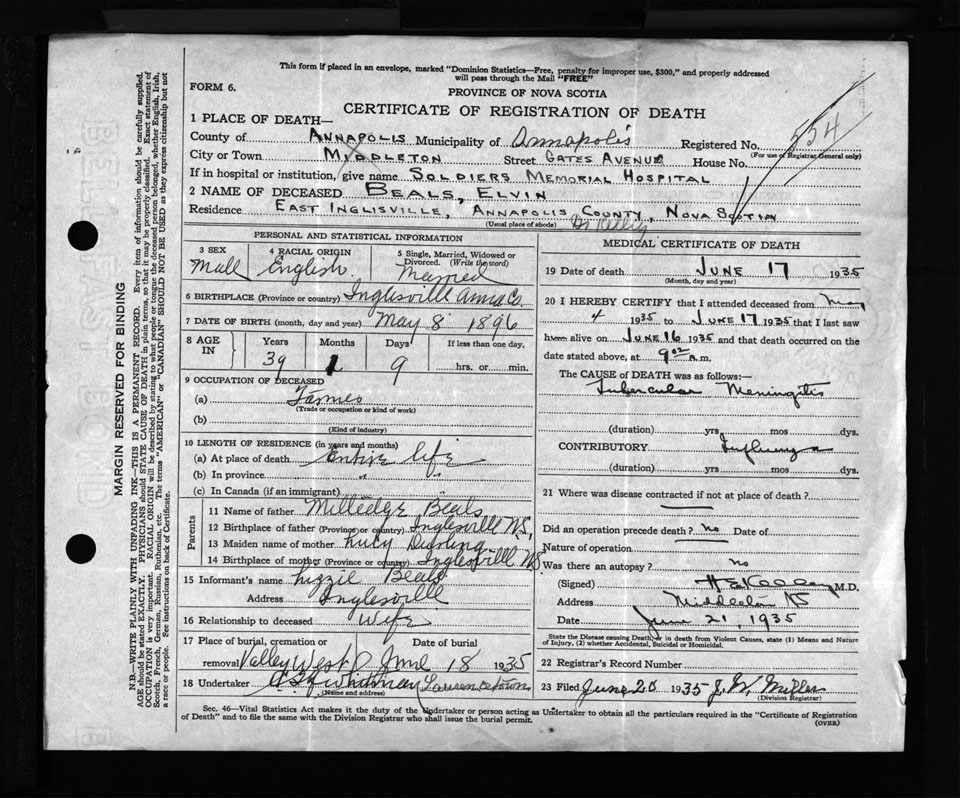 This form if placed in an envelope, marked "Dominion Statistics—Free, penalty for improper use, $300," and properly addressed
will pass through the Mail "FREE"
FORM 6.
PROVINCE OF NOVA SCOTIA
CERTIFICATE OF REGISTRATION OF DEATH
554
1 PLACE OF DEATH—
County of ANNAPOLIS Municipality of Annapolis Registered No.
(For use of Registrar General only)
City or Town MIDDLETON Street GATES AVENUE House No.
If in hospital or institution, give name SOLDIERS MEMORIAL HOSPITAL
2 NAME OF DECEASED BEALS, ELVIN
Residence EAST INGLISVILLE, ANNAPOLIS COUNTY, NOVA SCOTIA
(Usual place of abode) Dr Kelley
PERSONAL AND STATISTICAL INFORMATION
3 SEX Male
4 RACIAL ORIGIN English
5 Single, Married, Widowed or Divorced. (Write the word) Married
6 BIRTHPLACE (Province or country) Inglesville Anna Co.
7 DATE OF BIRTH (month, day and year) May 8 1896
8 AGE IN Years 39 Months 1 Days 9 If less than one day, hrs. or min.
9 OCCUPATION OF DECEASED
(a) Farmer
(Trade or occupation or kind of work)
(b)
(Kind of industry)
10 LENGTH OF RESIDENCE (in years and months)
(a) At place of death Entire life
(b) In province " "
(c) In Canada (if an immigrant)
Parents
11 Name of father Milledge Beals
12 Birthplace of father (Province or country) Inglesville N.S.
13 Maiden name of mother Lucy Durling
14 Birthplace of mother (Province or country) Inglesville N.S.
15 Informant's name Lizzie Beals
Address Inglesville
16 Relationship to deceased Wife
17 Place of burial, cremation or removal Valley West Date of burial June 18 1935
18 Undertaker Whitman Lawrencetown
(Name and address)
MEDICAL CERTIFICATE OF DEATH
19 Date of death JUNE 17 1935
(Month, day and year)
20 I HEREBY CERTIFY that I attended deceased from May
4 1935 to JUNE 17 1935 that I last saw
him alive on JUNE 16 1935 and that death occurred on the
date stated above, at 9 02 a.m.
The CAUSE OF DEATH was as follows:—
Tubercular Meningitis
(duration) yrs. mos dys.
CONTRIBUTORY Influenza
(duration) yrs. mos dys.
21 Where was disease contracted if not at place of death?
Did an operation precede death? No Date of
Nature of operation
Was there an autopsy? No
(Signed) H E Kelley M.D.
Address Middleton NS
Date June 21, 1935
State the Disease causing Death, or in death from Violent Causes, state (1) Means and Nature
of Injury, (2) whether Accidental, Suicidal or Homicidal.
22 Registrar's Record Number
23 Filed June 20 1935 Miller
(Division Registrar)
Sec. 46—Vital Statistics Act makes it the duty of the Undertaker or person acting as Undertaker to obtain all the particulars required in the "Certificate of Registration
of Death" and to file the same with the Division Registrar who shall issue the burial permit.
(OVER)
MARGIN RESERVED FOR BINDING
N.B.—WRITE PLAINLY WITH UNFADING INK—THIS IS A PERMANENT RECORD. Every item of information should be carefully supplied.
AGE should be stated EXACTLY. PHYSICIANS should STATE CAUSE OF DEATH in plain terms, so that it may be properly classified. Exact statement of
OCCUPATION is very important. RACIAL ORIGIN will be described by stating to what people or tongue the deceased person belonged, whether English, Irish,
Scotch, French, German, Russian, Ruthenian, etc. The terms "AMERICAN" or "CANADIAN" SHOULD NOT BE USED as they express citizenship but not
a race or people. See instructions on back of Certificate.